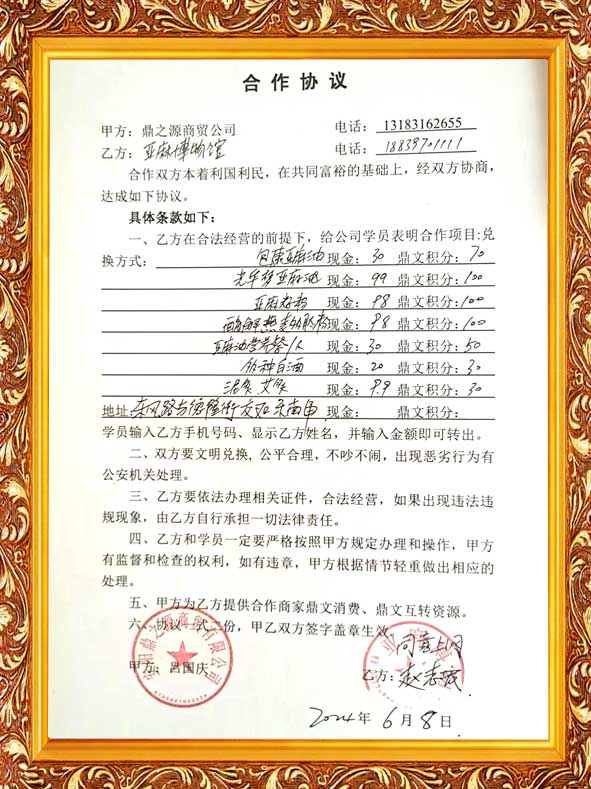 合作协议
甲方：鼎之源商贸公司 电话：13183162655
乙方：亚麻博物馆 电话：18839701111
合作双方本着利国利民，在共同富裕的基础上，经双方协商，
达成如下协议。
具体条款如下：
一、乙方在合法经营的前提下，给公司学员表明合作项目:兑
换方式： 亚麻油 现金：30 鼎文积分：70
亚麻油 现金：99 鼎文积分：100
亚麻籽粉 现金：98 鼎文积分：100
现金：98 鼎文积分：100
亚麻油营养餐/人 现金：30 鼎文积分：50
各种白酒 现金：20 鼎文积分：30
泥灸 艾灸 现金：9.9 鼎文积分：30
地址 现金： 鼎文积分：
学员输入乙方手机号码、显示乙方姓名，并输入金额即可转出。
二、双方要文明兑换, 公平合理，不吵不闹，出现恶劣行为有
公安机关处理。
三、乙方要依法办理相关证件，合法经营，如果出现违法违
规现象，由乙方自行承担一切法律责任。
四、乙方和学员一定要严格按照甲方规定办理和操作，甲方
有监督和检查的权利，如有违章，甲方根据情节轻重做出相应的
处理。
五、甲方为乙方提供合作商家鼎文消费、鼎文互转资源。
六、协议一式二份，甲乙双方签字盖章生效。
同意上网
甲方：吕国庆 乙方：
2024年6月8日